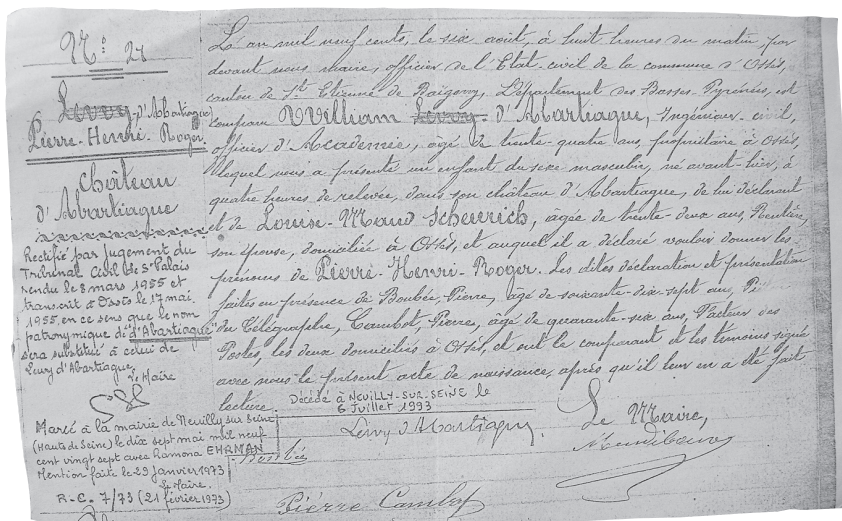 N°: 27
Levy d'Abartiague
Pierre-Henri-Roger.
Château
d'Abartiague
Rectifié par Jugement du
Tribunal Civil de St Palais
rendu le 8 mars 1955 et
transcrit à Ossès le 17 mai
1955, en ce sens que le nom
patronymique de "d'Abartiague"
sera substitué à celui de
Levy d'Abartiague.
Le Maire
Marié à la mairie de Neuilly sur Seine
(Hauts de Seine) le dix sept mai mil neuf
cent vingt sept avec Ramona EHRMAN
Mention faite le 29 Janvier 1973
Le Maire.
R.C. 7/73 (21 février 1973)
L'an mil neuf cents, le six août, à huit heures du matin par
devant nous Maire, officier de l'Etat-civil de la commune d'Ossès,
canton de St Etienne de Baïgorry, Département des Basses-Pyrénées, est
comparu William Levy d'Abartiague, Ingénieur civil,
officier d'Académie, âgé de trente-quatre ans, propriétaire à Ossès,
lequel nous a présenté un enfant du sexe masculin, né avant-hier, à
quatre heures de relevée, dans son château d'Abartiague, de lui déclarant
et de Louise-Maud Scheurich, âgée de trente-deux ans, Rentière,
son épouse, domiciliée à Ossès, et auquel il a déclaré vouloir donner les
prénoms de Pierre-Henri-Roger. Les dites déclaration et présentation
faites en présence de Boubée, Pierre, âgé de soixante-dix-sept ans,
du Télégraphe, Cambot, Pierre, âgé de quarante-six ans, Facteur des
Postes, les deux domiciliés à Ossès, et ont le comparant et les témoins signé
avec nous le présent acte de naissance, après qu'il leur en a été fait
lecture.
Décédé à NEUILLY-SUR-SEINE le
6 Juillet 1993
Levy d'Abartiague.
Le Maire,
Boubée
Pierre Cambot